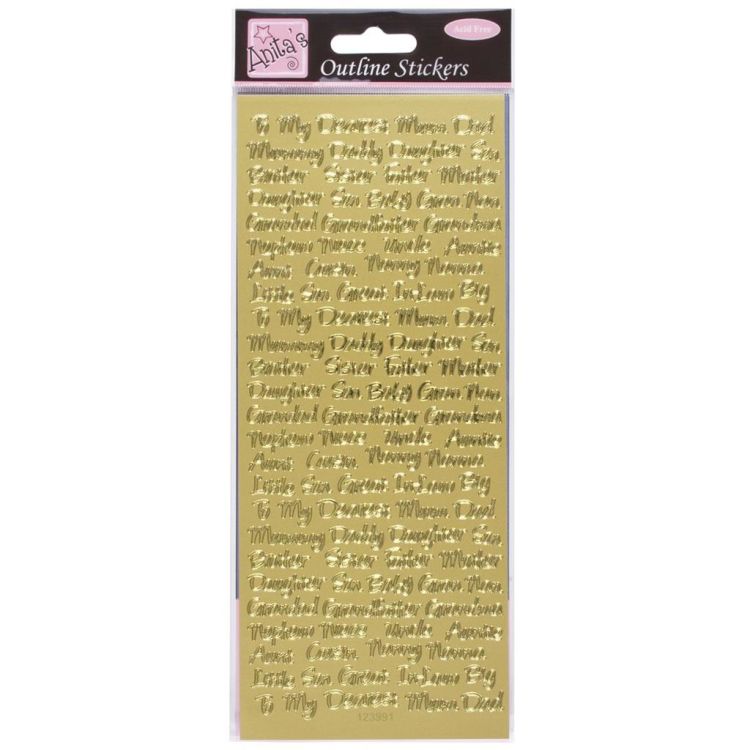 Anita's
Acid Free
Outline Stickers
To My Dearest Mum Dad
Mummy Daddy Daughter Son
Brother Sister Father Mother
Daughter Son Baby Gran Nan
Grandad Grandfather Grandson
Nephew Niece Uncle Auntie
Aunt Cousin Nanny Nanna
Little Son Great In Law Big
To My Dearest Mum Dad
Mummy Daddy Daughter Son
Brother Sister Father Mother
Daughter Son Baby Gran Nan
Grandad Grandfather Grandson
Nephew Niece Uncle Auntie
Aunt Cousin Nanny Nanna
Little Son Great In Law Big
To My Dearest Mum Dad
Mummy Daddy Daughter Son
Brother Sister Father Mother
Daughter Son Baby Gran Nan
Grandad Grandfather Grandson
Nephew Niece Uncle Auntie
Aunt Cousin Nanny Nanna
Little Son Great In Law Big
To My Dearest Mum Dad
123991